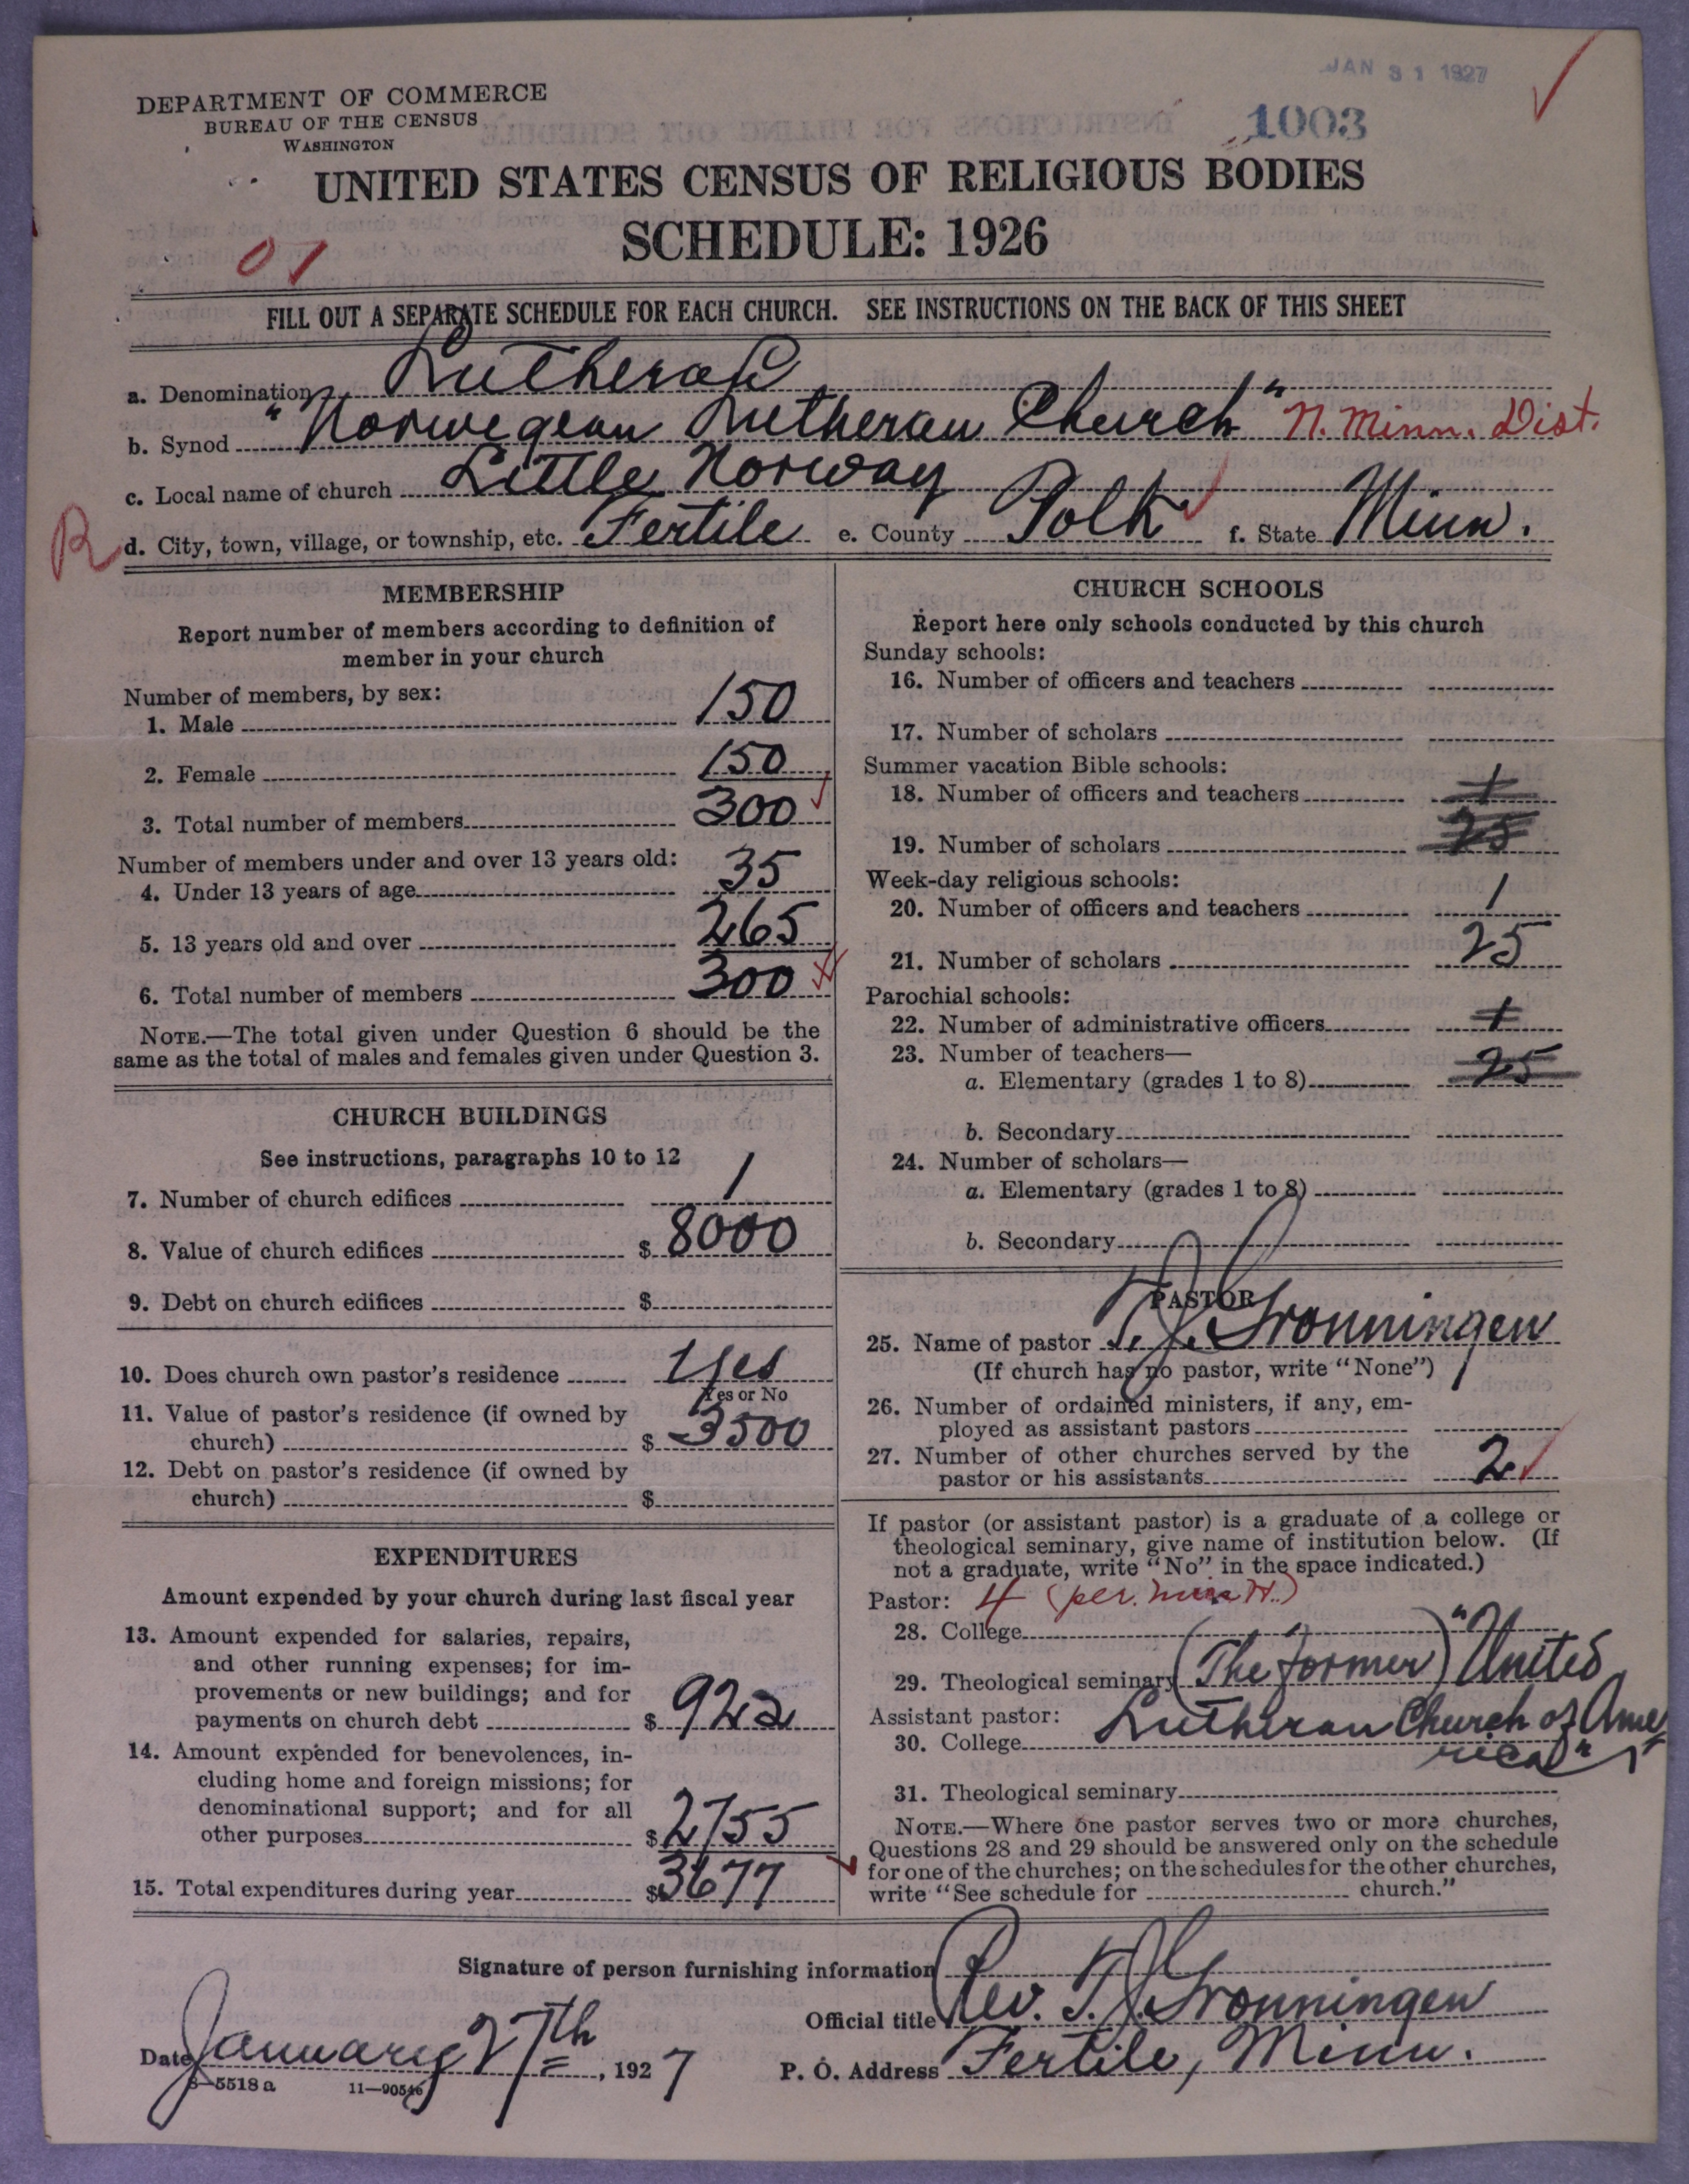 JAN 31 1927
1003
DEPARTMENT OF COMMERCE
BUREAU OF THE CENSUS
WASHINGTON
UNITED STATES CENSUS OF RELIGIOUS BODIES
SCHEDULE: 1926
01
FILL OUT A SEPARATE SCHEDULE FOR EACH CHURCH. SEE INSTRUCTIONS ON THE BACK OF THIS SHEET
a. Denomination Lutheran
b. Synod "Norwegean Lutheran Church" N. Minn. Dist.
c. Local name of church Little Norway
R d. City, town, village, or township, etc. Fertile e. County Polk f. State Minn.
MEMBERSHIP
Report number of members according to definition of
member in your church
Number of members, by sex:
1. Male 150
2. Female 150
3. Total number of members 300
Number of members under and over 13 years old:
4. Under 13 years of age 35
5. 13 years old and over 265
6. Total number of members 300
NOTE.—The total given under Question 6 should be the
same as the total of males and females given under Question 3.
CHURCH BUILDINGS
See instructions, paragraphs 10 to 12
7. Number of church edifices 1
8. Value of church edifices $ 8000
9. Debt on church edifices $
10. Does church own pastor's residence Yes
Yes or No
11. Value of pastor's residence (if owned by
church) $ 3500
12. Debt on pastor's residence (if owned by
church) $
EXPENDITURES
Amount expended by your church during last fiscal year
13. Amount expended for salaries, repairs,
and other running expenses; for im-
provements or new buildings; and for
payments on church debt $ 922
14. Amount expended for benevolences, in-
cluding home and foreign missions; for
denominational support; and for all
other purposes $ 2755
15. Total expenditures during year $ 3677
CHURCH SCHOOLS
Report here only schools conducted by this church
Sunday schools:
16. Number of officers and teachers
17. Number of scholars
Summer vacation Bible schools:
18. Number of officers and teachers 1
19. Number of scholars 25
Week-day religious schools:
20. Number of officers and teachers 1
21. Number of scholars 25
Parochial schools:
22. Number of administrative officers 1
23. Number of teachers—
a. Elementary (grades 1 to 8) 25
b. Secondary
24. Number of scholars—
a. Elementary (grades 1 to 8)
b. Secondary
PASTOR
25. Name of pastor T. J. Gronningen
(If church has no pastor, write "None")
26. Number of ordained ministers, if any, em-
ployed as assistant pastors
27. Number of other churches served by the
pastor or his assistants 2
If pastor (or assistant pastor) is a graduate of a college or
theological seminary, give name of institution below. (If
not a graduate, write "No" in the space indicated.)
Pastor: 4 (per.
28. College
29. Theological seminary (The former) "United
Assistant pastor: Lutheran Church of Ame
30. College rica"
31. Theological seminary
NOTE.—Where one pastor serves two or more churches,
Questions 28 and 29 should be answered only on the schedule
for one of the churches; on the schedules for the other churches,
write "See schedule for church."
Signature of person furnishing information
Official title Rev. T. J. Gronningen
Date January 27th, 1927 P. O. Address Fertile, Minn.
8—5518 a 11—90546